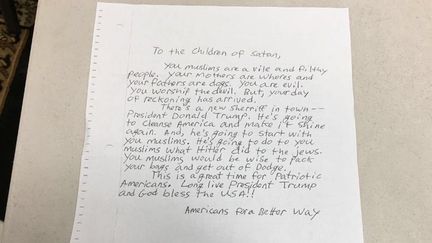 To the Children of Satan,
You muslims are a vile and filthy
people. Your mothers are whores and
your fathers are dogs. You are evil.
You worship the devil. But, your day
of reckoning has arrived.
There's a new sherriff in town--
President Donald Trump. He's going
to cleanse America and make it shine
again. And, he's going to start with
you muslims. He's going to do to you
muslims what Hitler did to the jews.
You muslims would be wise to pack
your bags and get out of Dodge.
This is a great time for Patriotic
Americans. Long live President Trump
and God bless the USA!!
Americans for a Better Way